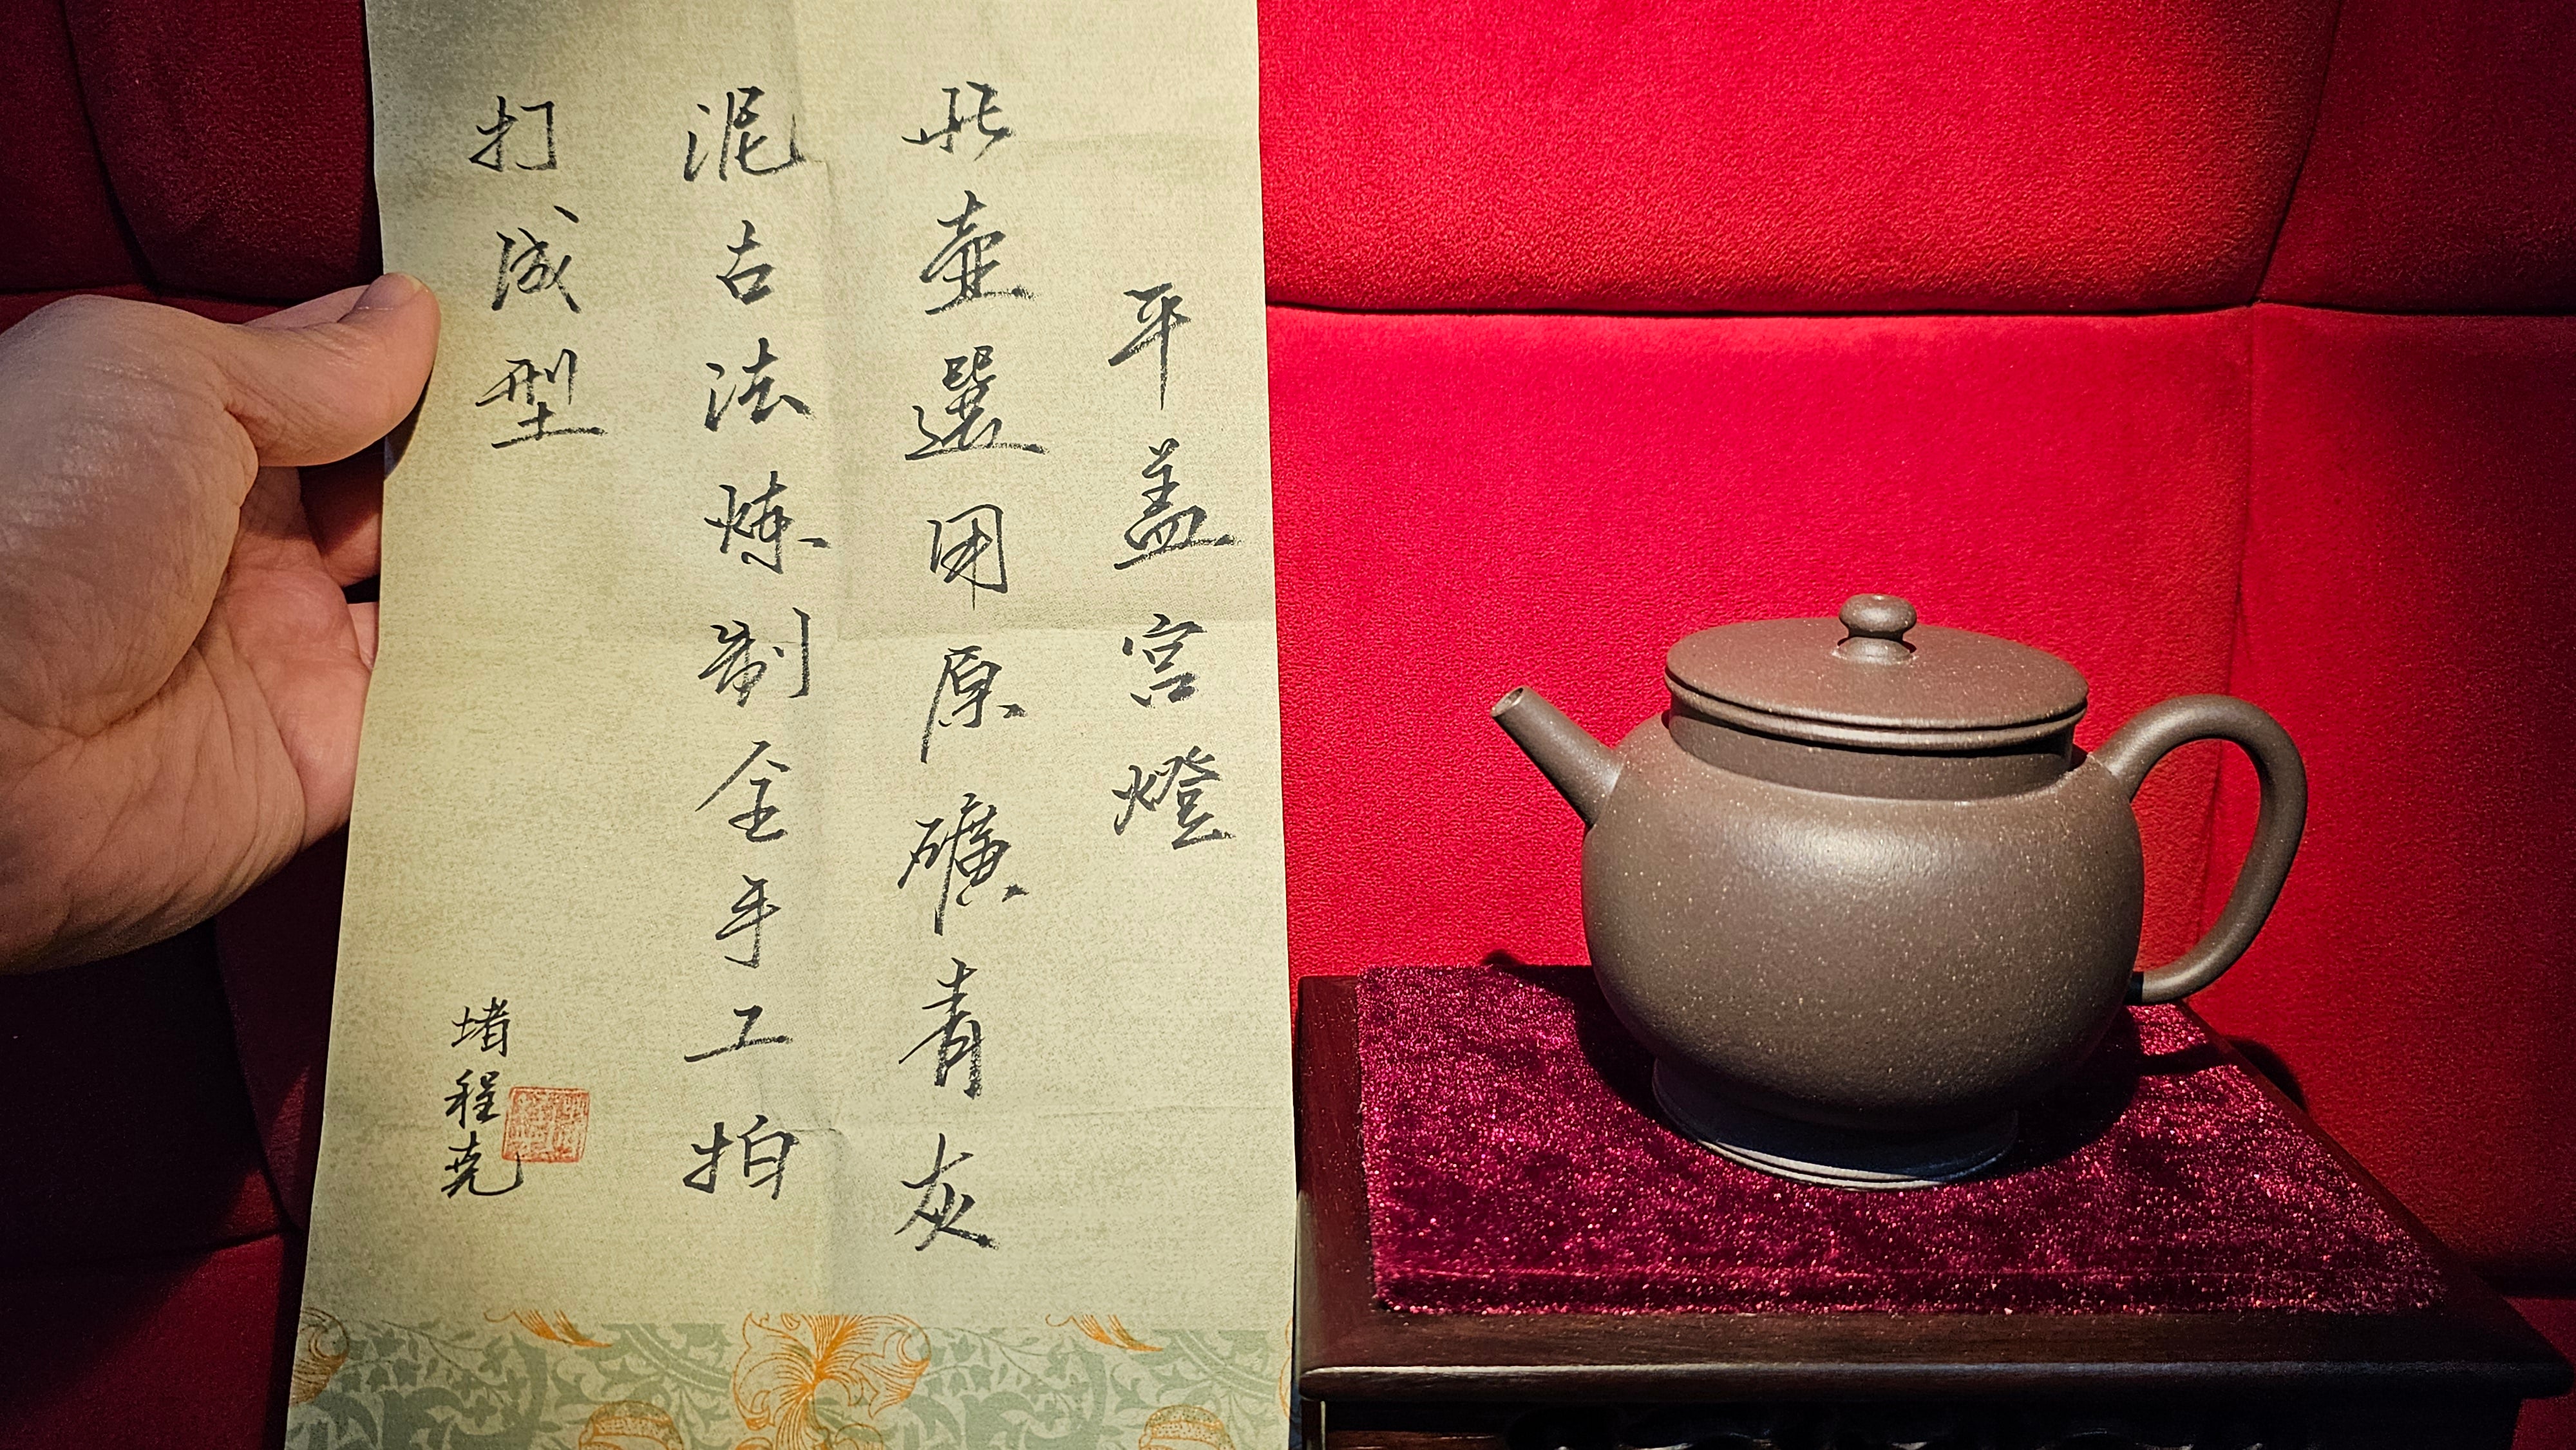 平盖宫燈
此壶選用原礦青灰
泥古法炼制全手工拍
打成型
堵程尧